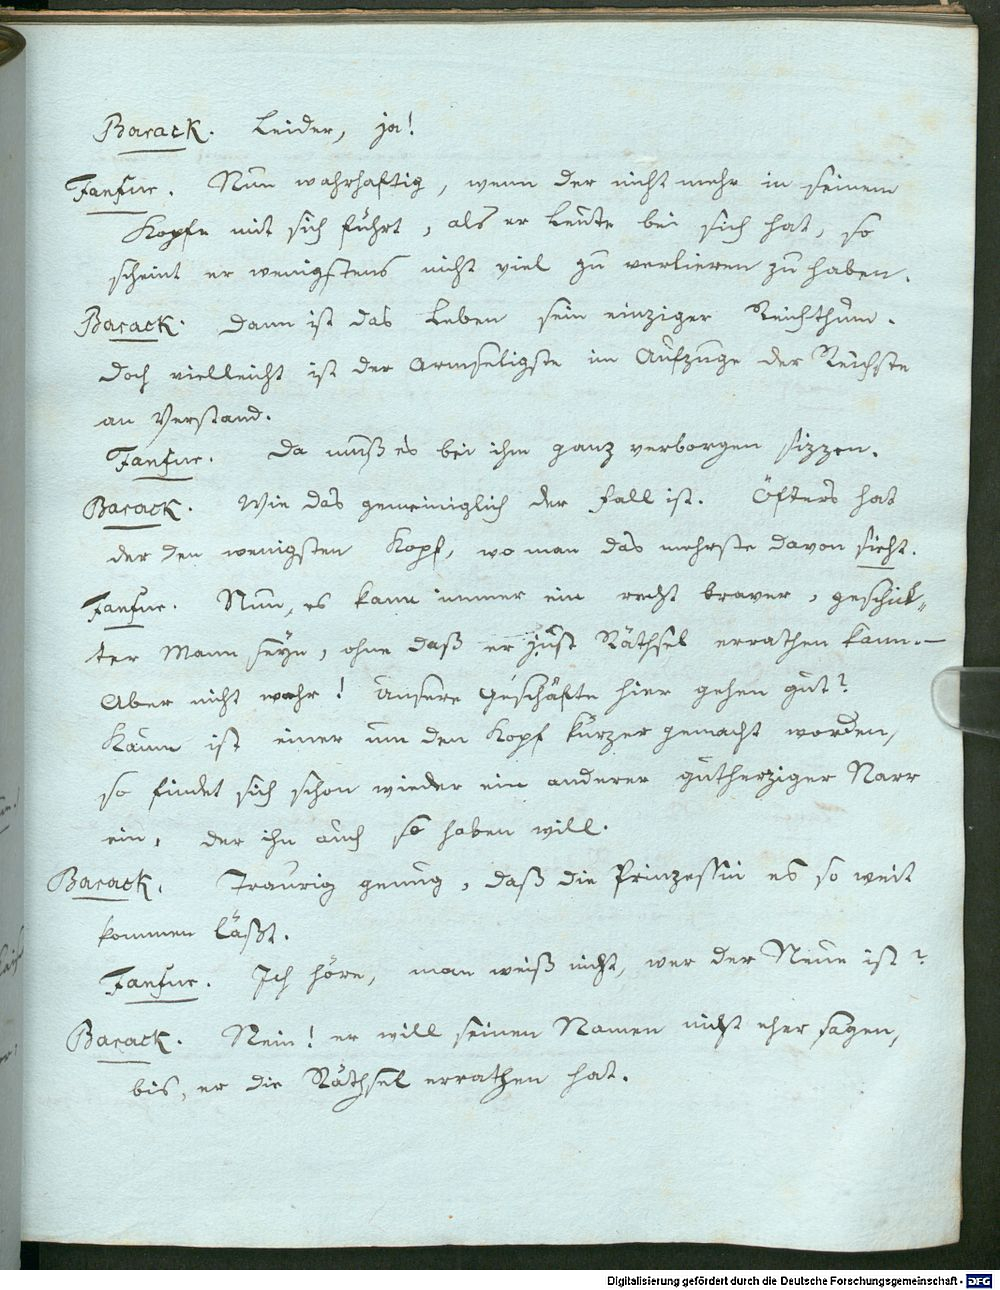 Barack. Leider, ja!
Fanfur. Nun wahrhaftig, wenn der nicht mehr in seinem
Kopfe mit sich führt, als er Leute bei sich hat, so
scheint er wenigstens nicht viel zu verlieren zu haben.
Barack. Dann ist das Leben sein einziger Reichthum.
Doch vielleicht ist der Armseligste im Aufzuge der Reichste
an Verstand.
Fanfur. Da muß es bei ihm ganz verborgen sizzen.
Barack. Wie das gemeiniglich der Fall ist. Öfters hat
der den wenigsten Kopf, wo man das mehrste davon sieht.
Fanfur. Nun, es kann immer ein recht braver, geschick-
ter Mann seyn, ohne daß er just Räthsel errathen kann.—
Aber nicht wahr! Unsere Geschäfte hier gehen gut?
Kaum ist einer um den Kopf kürzer gemacht worden,
so findet sich schon wieder ein anderer gutherziger Narr
ein, der ihn auch so haben will.
Barack. Traurig genug, daß die Prinzessin es so weit
kommen läßt.
Fanfur. Ich höre, man weiß nicht, wer der Neue ist?
Barack. Nein! er will seinen Namen nicht eher sagen,
bis, er die Räthsel errathen hat.
Digitalisierung gefördert durch die Deutsche Forschungsgemeinschaft - DFG